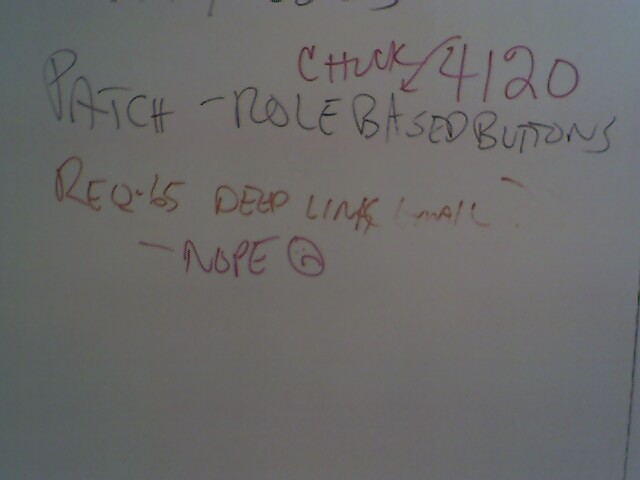 CHUCK 4120
PATCH - ROLE BASED BUTTONS
REQ-65 DEEP LINKS
- NOPE